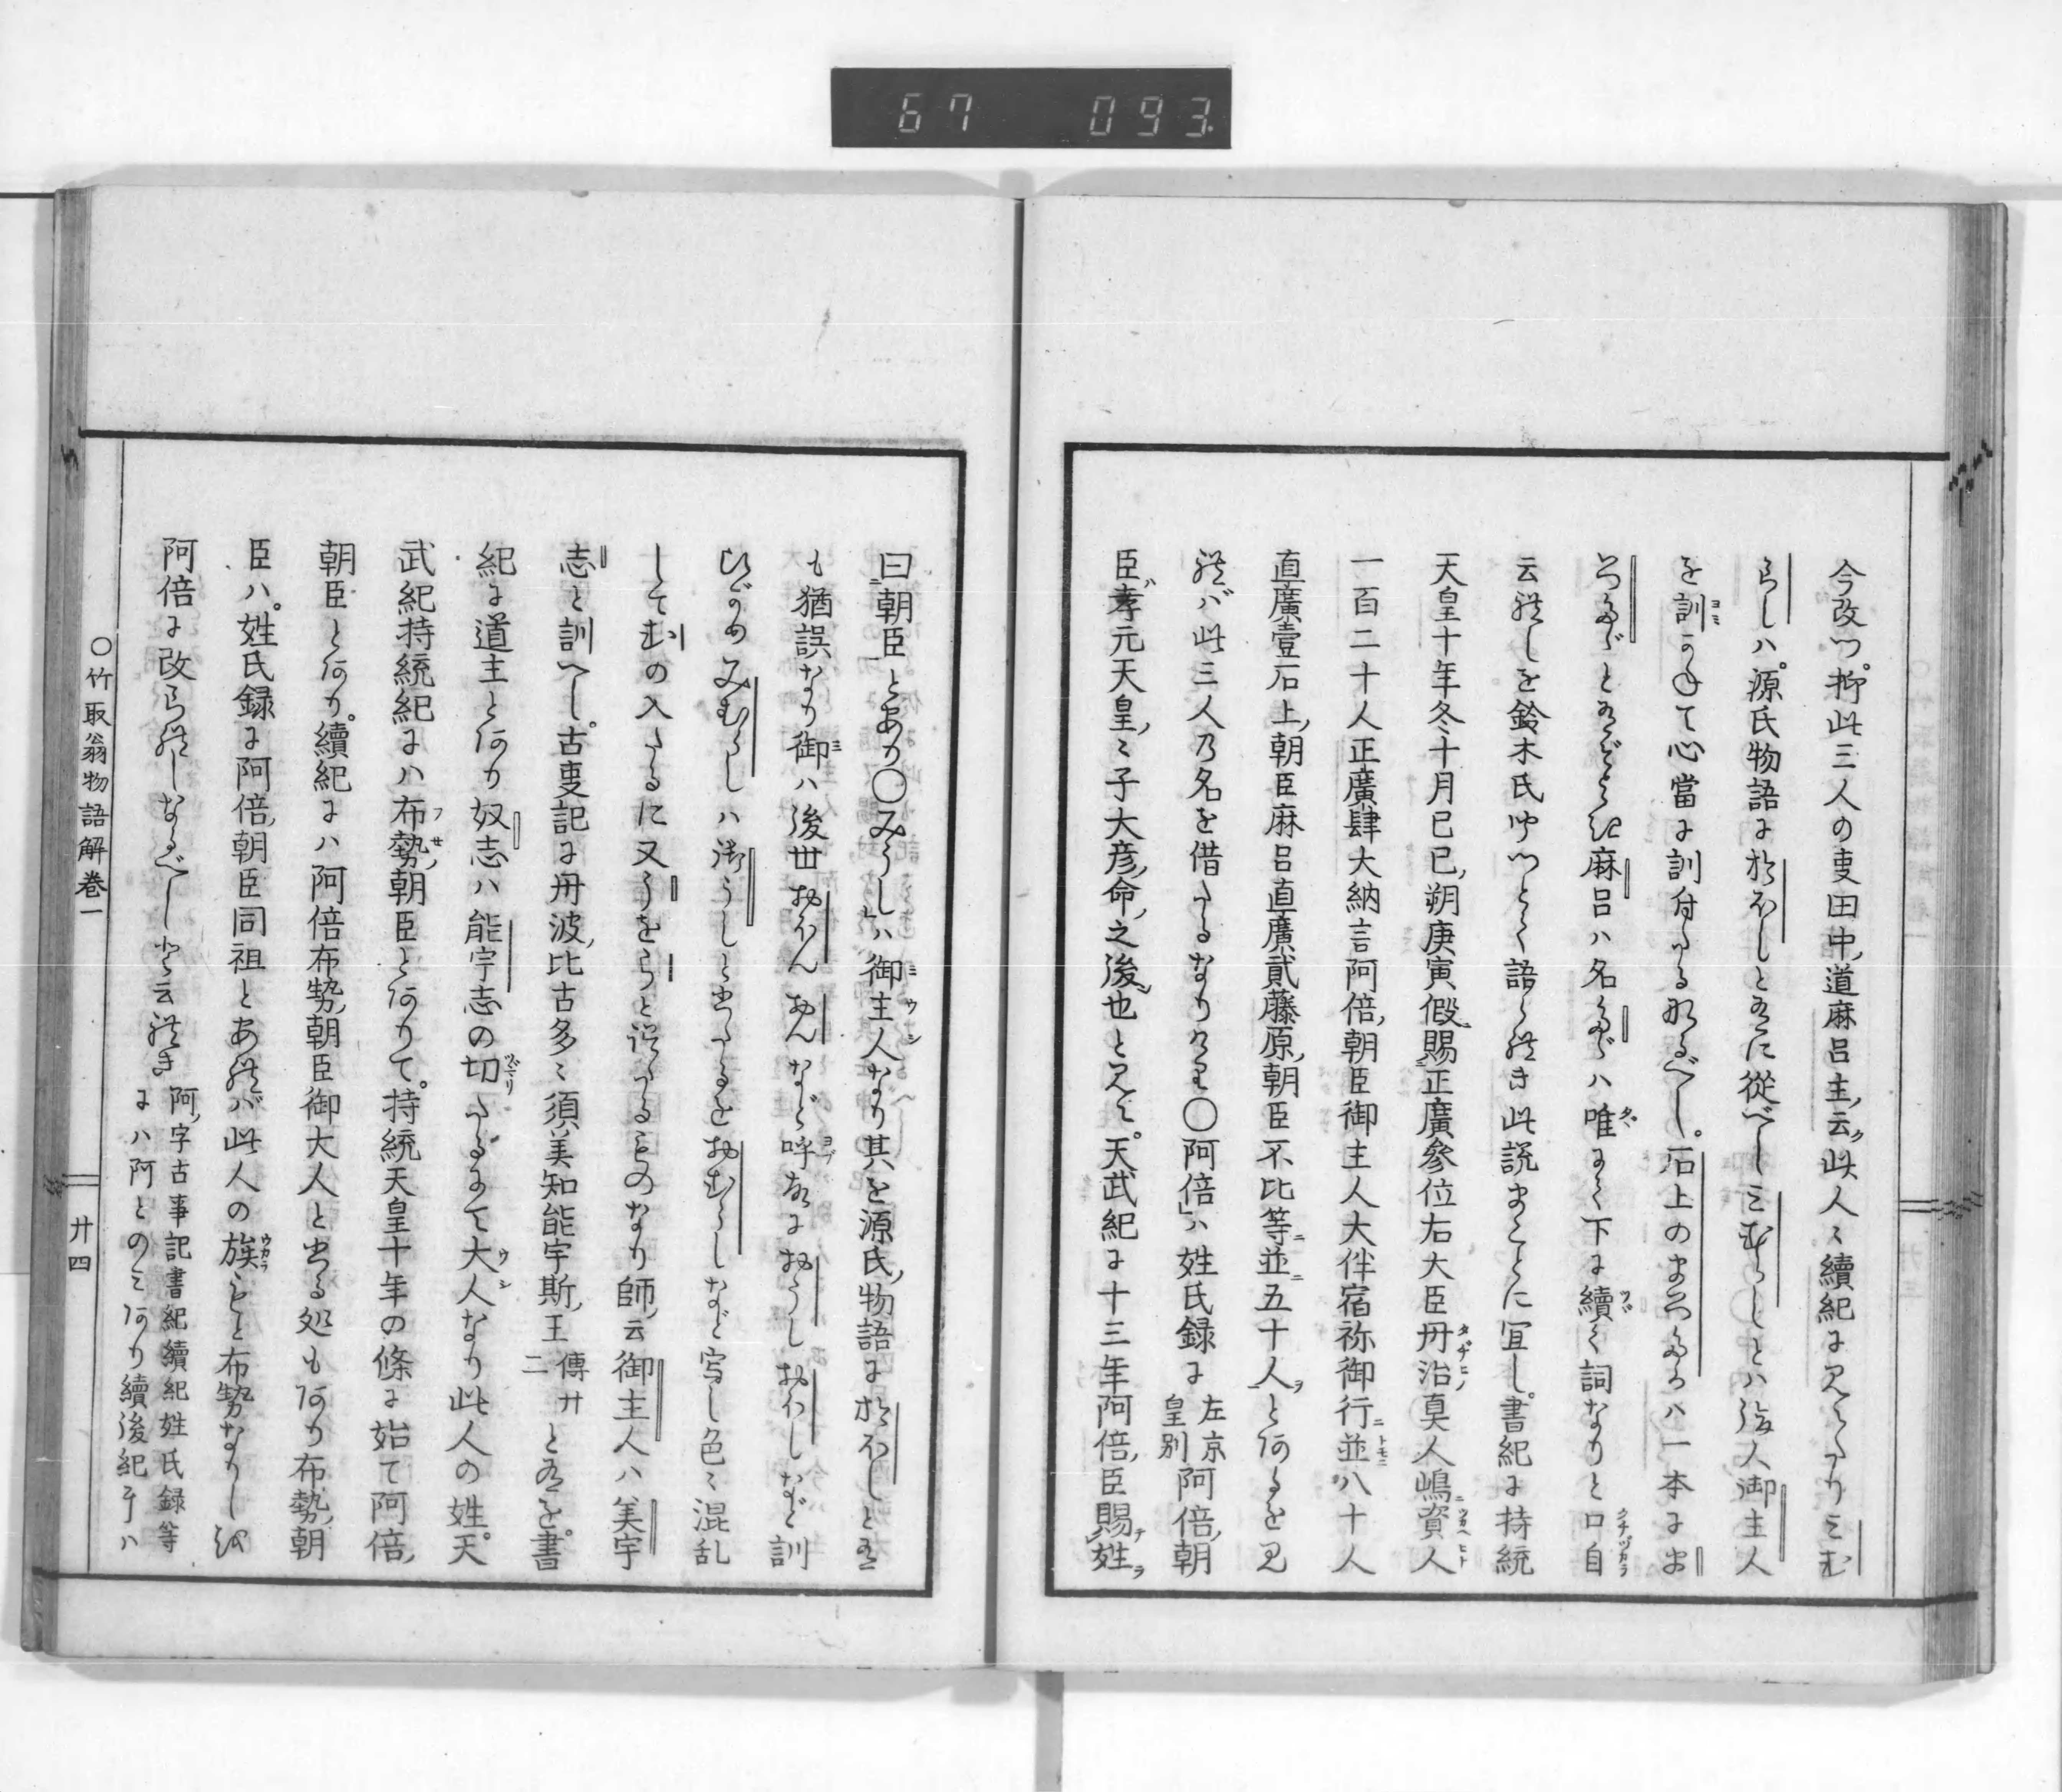 67 093
今改つ抑此三人の叓田中道麻呂主云此人〻續紀に見えたりミむ
らしハ源氏物語におほしと有に從べしミむらしとハ後人御主人
を訓かねて心當に訓付たる形るべし石上のまろたりハ一本にま
ろたりとあるをとる麻呂ハ名たりハ唯よく下に續く詞なりと口自
云れしを鈴木氏聞つとく語られき此説まことに宜し書紀に持統
天皇十年冬十月己巳朔庚寅假賜正廣參位右大臣丹治真人嶋資人
一百二十人正廣肆大納言阿倍朝臣御主人大伴宿祢御行並八十人
直廣壹石上朝臣麻呂直廣貳藤原朝臣不比等並五十人とあるを見
れバ此三人乃名を借たるなりけり〇阿倍ハ姓氏録に左京皇別阿倍朝
臣孝元天皇〻子大彦命之後也と見え天武紀に十三年阿倍臣賜姓
曰朝臣とあり〇みうしハ御主人なり其を源氏物語におほしと有
も猶誤なり御ハ後世おほんおんなど呼故におうしおほしなど訓
ひがめみむらしハ御うしと書たるをおむらしなど写し色〻混乱
してむの入たるに又うをらと誤たるものなり師云御主人ハ美宇
志と訓へし古叓記に丹波比古多〻須美知能宇斯王傳廿二と有を書
紀に道主とあり奴志ハ能宇志の切たるにて大人なり此人の姓天
武紀持統紀にハ布勢朝臣とありて持統天皇十年の條に始て阿倍
朝臣とあり續紀にハ阿倍布勢朝臣御大人と書る処もあり布勢朝
臣ハ姓氏録に阿倍朝臣同祖とあれバ此人の族もと布勢なりしを
阿倍に改られしなるべしと云れき阿字古事記書紀續紀姓氏録等にハ阿とのミあり續後紀ヨリハ
〇竹取翁物語解卷一
廿四